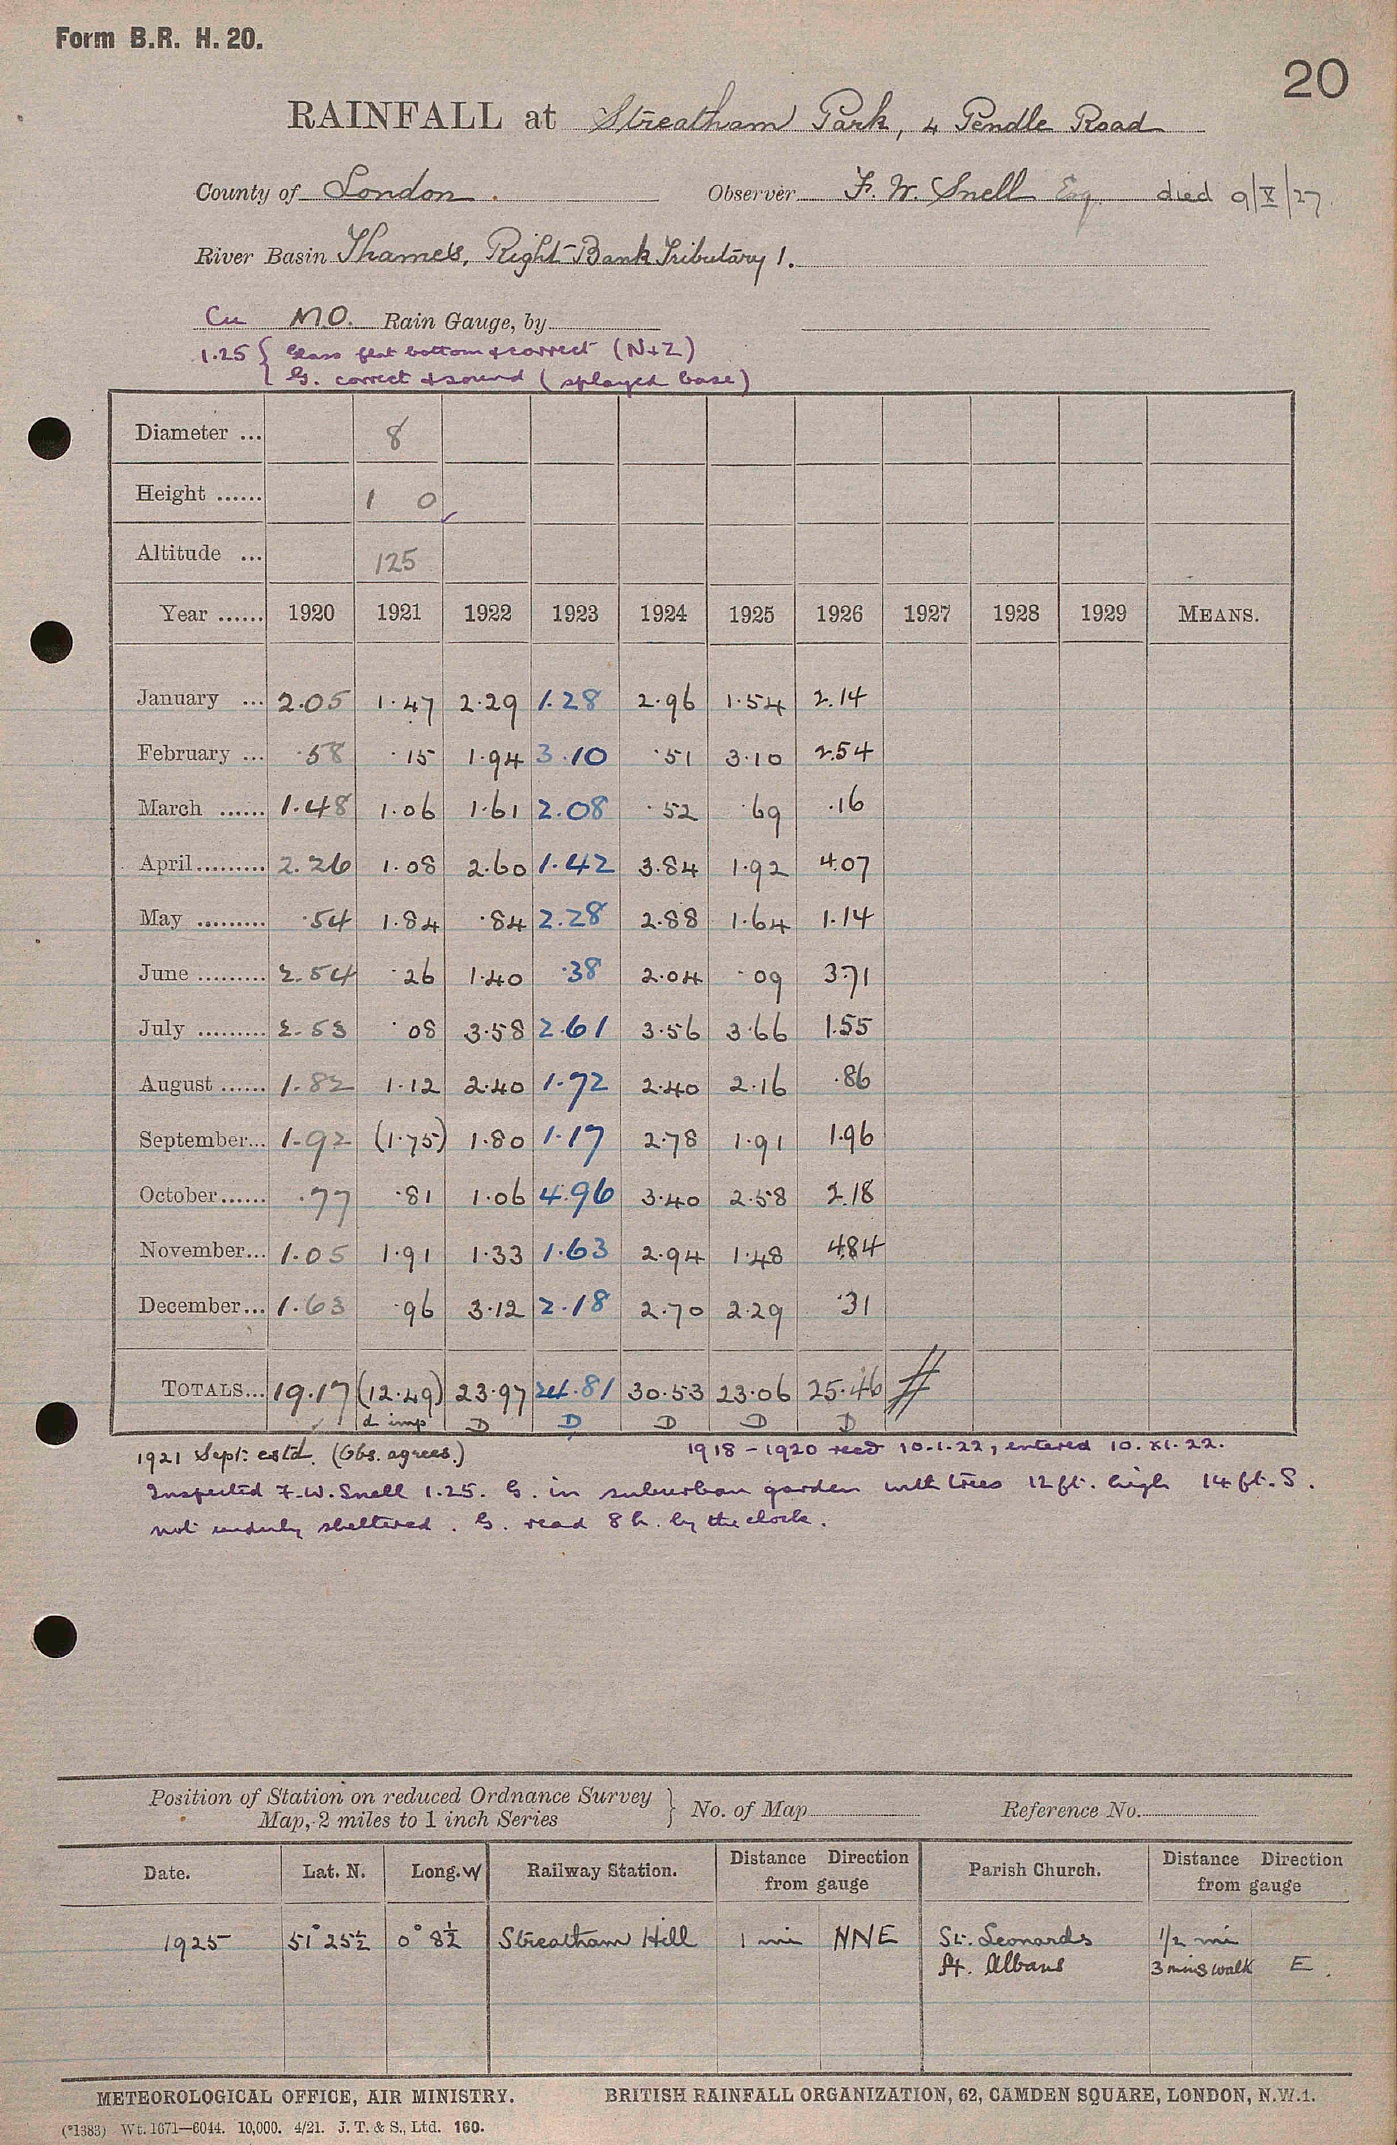 Form B.R. H. 20.
20
RAINFALL at Streatham Park, 4 Pendle Road
County of London. Observer F. W. Snell Esq. died 9/X/27.
River Basin Thames, Right Bank Tributary 1.
Cu M.O. Rain Gauge, by
1.25 { Glass flat bottom & correct (N+Z)
G. correct & sound (splayed base)
Diameter ... 8
Height ...... 1 0
Altitude ... 125
Year ...... 1920 1921 1922 1923 1924 1925 1926 1927 1928 1929 MEANS.
January ... 2.05 1.47 2.29 1.28 2.96 1.54 2.14
February ... .58 .15 1.94 3.10 .51 3.10 2.54
March ...... 1.48 1.06 1.61 2.08 .52 .69 .16
April ......... 2.26 1.08 2.60 1.42 3.84 1.92 4.07
May ......... .54 1.84 .84 2.28 2.88 1.64 1.14
June ......... 2.54 .26 1.40 .38 2.04 .09 3.71
July ......... 2.53 .08 3.58 2.61 3.56 3.66 1.55
August ...... 1.82 1.12 2.40 1.72 2.40 2.16 .86
September... 1.92 (1.75) 1.80 1.17 2.78 1.91 1.96
October...... .77 .81 1.06 4.96 3.40 2.58 2.18
November... 1.05 1.91 1.33 1.63 2.94 1.48 4.84
December... 1.63 .96 3.12 2.18 2.70 2.29 .31
TOTALS... 19.17 (12.49) 23.97 24.81 30.53 23.06 25.46 #
d imp D D D D D
1921 Sept: estd. (Obs. agrees.) 1918 - 1920 recd 10.1.22, entered 10.XI.22.
Inspected F.W. Snell 1.25. G. in suburban garden with trees 12 ft. high 14 ft. S.
not unduly sheltered. G. read 8 h. by the clock.
Position of Station on reduced Ordnance Survey
Map, 2 miles to 1 inch Series } No. of Map Reference No.
Date. Lat. N. Long. W Railway Station. Distance Direction from gauge Parish Church. Distance Direction from gauge
1925 51° 25½ 0° 8½ Streatham Hill 1 mi NNE St. Leonards 1/2 mi
St. Albans 3 mins walk E.
METEOROLOGICAL OFFICE, AIR MINISTRY. BRITISH RAINFALL ORGANIZATION, 62, CAMDEN SQUARE, LONDON, N.W.1.
(*1383) Wt. 1671—6044. 10,000. 4/21. J. T. & S., Ltd. 160.